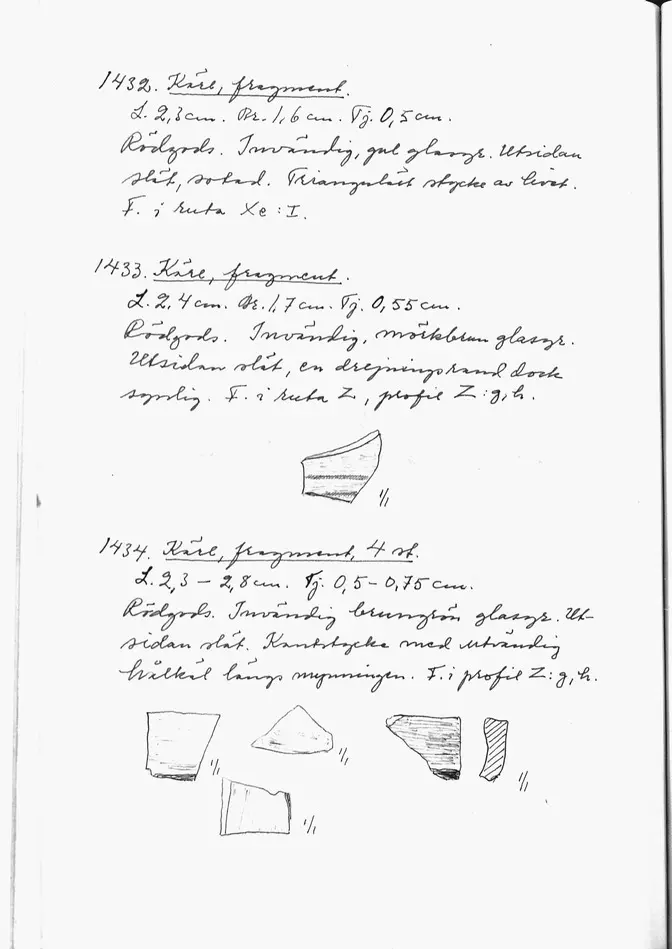 1432. Kärl, fragment.
L. 2,3 cm. Br. 1,6 cm. Tj. 0,5 cm.
Rödgods. Invändig, gul glasyr. Utsidan
slät, sotad. Triangulärt stycke av livet.
F. i ruta Xe : I.
1433. Kärl, fragment.
L. 2,4 cm. Br. 1,7 cm. Tj. 0,55 cm.
Rödgods. Invändig, mörkbrun glasyr.
Utsidan slät, en drejningsrand dock
synlig. F. i ruta Z, profil Z : g, h.
1/1
1434. Kärl, fragment, 4 st.
L. 2,3 – 2,8 cm. Tj. 0,5 – 0,75 cm.
Rödgods. Invändig brungrön glasyr. Ut-
sidan slät. Kantstycke med utvändig
hålkäl längs mynningen. F. i profil Z : g, h.
1/1
1/1
1/1
1/1